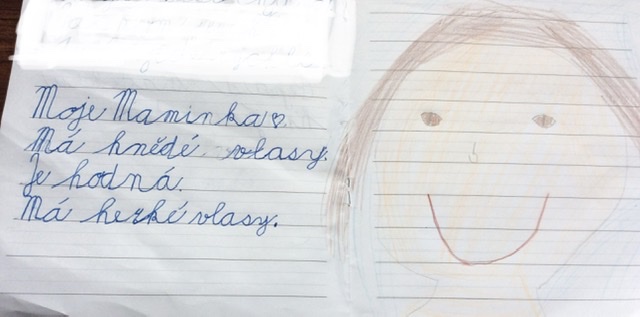 Moje Maminka♡
Má hnědé vlasy.
Je hodná.
Má herké vlasy.